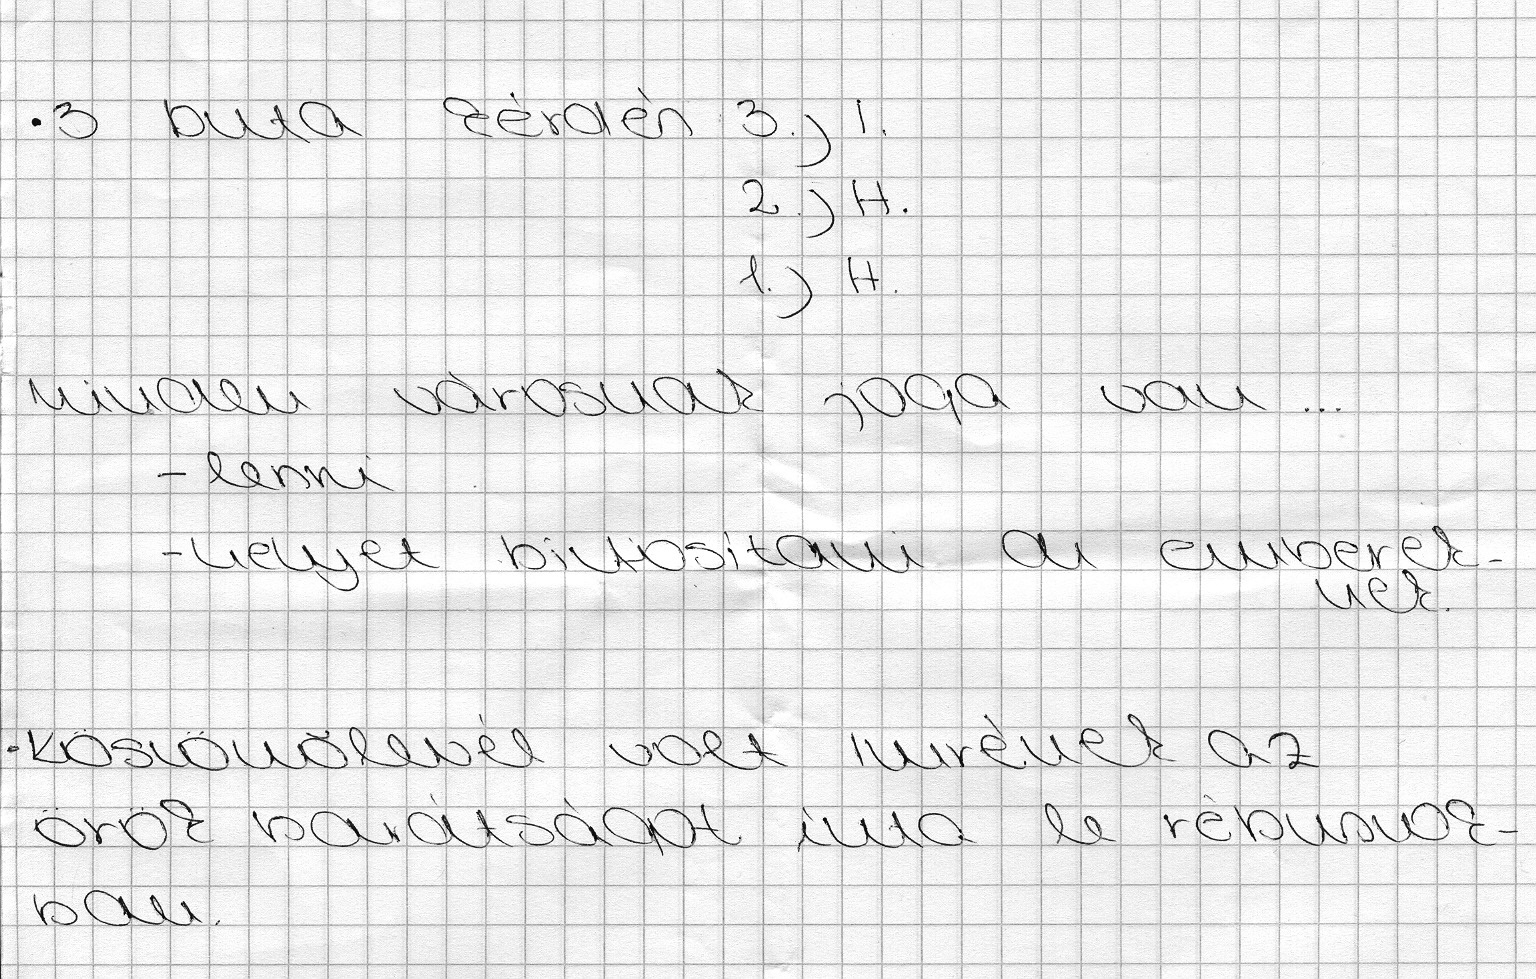 • 3 buta kérdés 3.) I.
2.) H.
1.) H.
Minden városnak joga van ...
- lenni
- helyet biztosítani az emberek-
nek.
• Köszönőlevél volt Imrének az
örök barátságot írta le rébuszok-
ban.